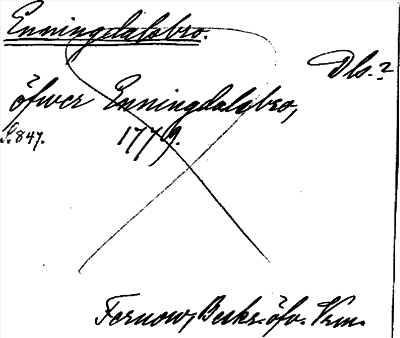 Enningdalsbro.
Dls.?
öfver Enningdalsbro,
S. 847. 1779.
Fernow, Beskr. öfv. Vrm.